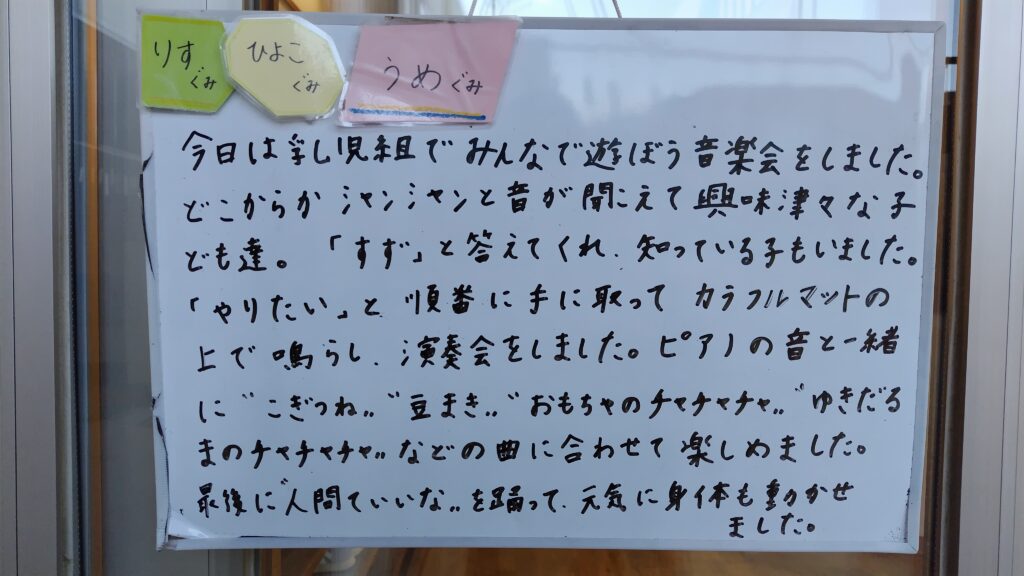 りすぐみ
ひよこぐみ
うめぐみ
今日は乳児組でみんなで遊ぼう音楽会をしました。
どこからかシャンシャンと音が聞こえて興味津々な子
ども達。「すず」と答えてくれ、知っている子もいました。
「やりたい」と順番に手に取ってカラフルマットの
上で鳴らし、演奏会をしました。ピアノの音と一緒
に〝こぎつね〟〝豆まき〟〝おもちゃのチャチャチャ〟〝ゆきだる
まのチャチャチャ〟などの曲に合わせて楽しめました。
最後に〝人間ていいな〟を踊って、元気に身体も動かせ
ました。